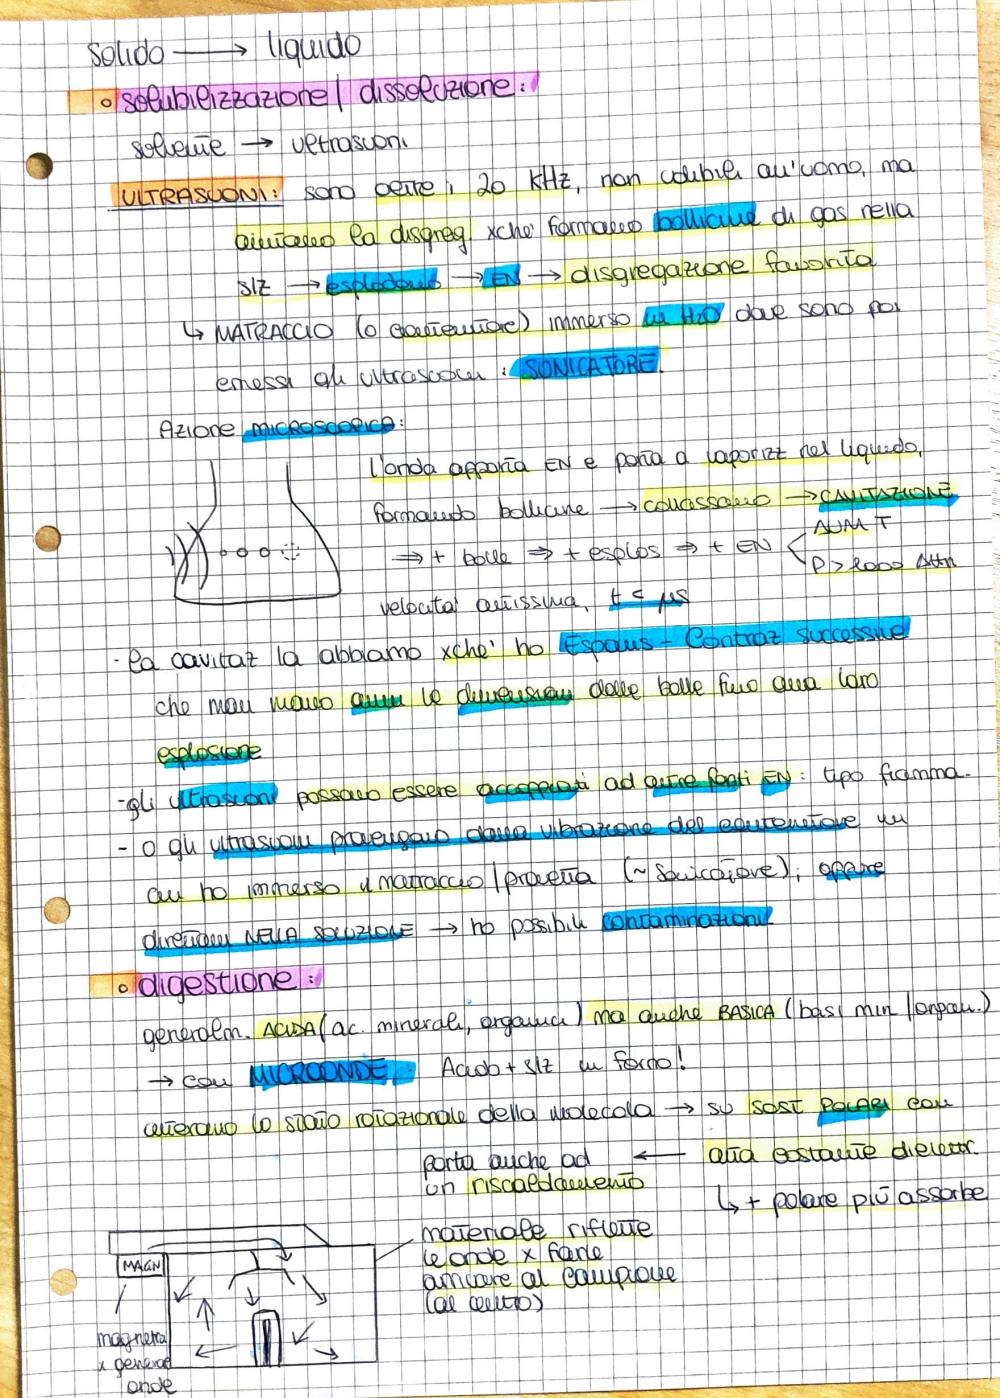 solido → liquido
• solubilizzazione / dissoluzione:
solvente → ultrasuoni
ULTRASUONI: sono oltre i 20 kHz, non udibili all'uomo, ma
aiutano la disgreg xche' formano bollicine di gas nella
slz → esplodono → EN → disgregazione favorita
↳ MATRACCIO (o contenitore) immerso in H2O dove sono poi
emessi gli ultrasuoni : SONICATORE.
Azione MICROSCOPICA:
l'onda apporta EN e porta a vaporizz nel liquido,
formando bollicine → collassano → CAVITAZIONE
⇒ + bolle ⇒ + esplos ⇒ + EN < AUM T
P > 1000 Atm
velocita' altissima, t < μs
- la cavitaz la abbiamo xche' ho Espans - Contraz successive
che man mano aum le dimensioni delle bolle fino alla loro
esplosione
- gli ultrasuoni possono essere accoppiati ad altre fonti EN: tipo fiamma.
- o gli ultrasuoni provengono dalla vibrazione del contenitore in
cui ho immerso il matraccio / provetta (~ Sonicatore); oppure
direttam NELLA SOLUZIONE → ho possibili contaminazioni.
• digestione:
generalm. ACIDA (ac. minerali, organici) ma anche BASICA (basi min / organ.)
→ con MICROONDE: Acido + slz in forno!
alterano lo stato rotazionale della molecola → su SOST POLARI con
alta costante dielettr.
↳ + polare più assorbe
← porta anche ad
un riscaldamento
materiale riflette
le onde x farle
arrivare al campione
(al centro)
MAGN
magnetr
x generar
onde